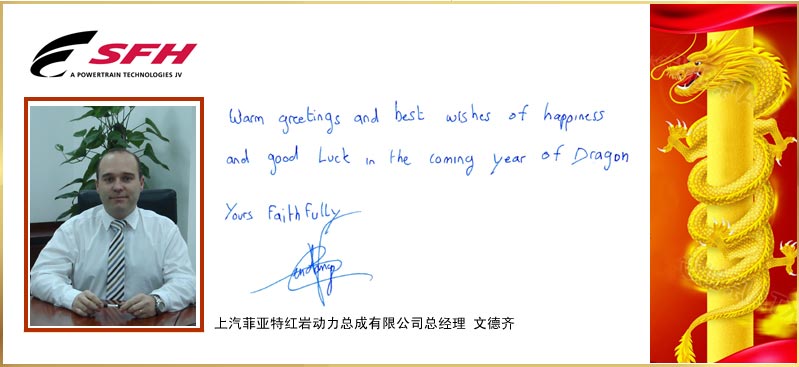 SFH
A POWERTRAIN TECHNOLOGIES JV
Warm greetings and best wishes of happiness
and good Luck in the coming year of Dragon
Yours Faithfully
上汽菲亚特红岩动力总成有限公司总经理 文德齐